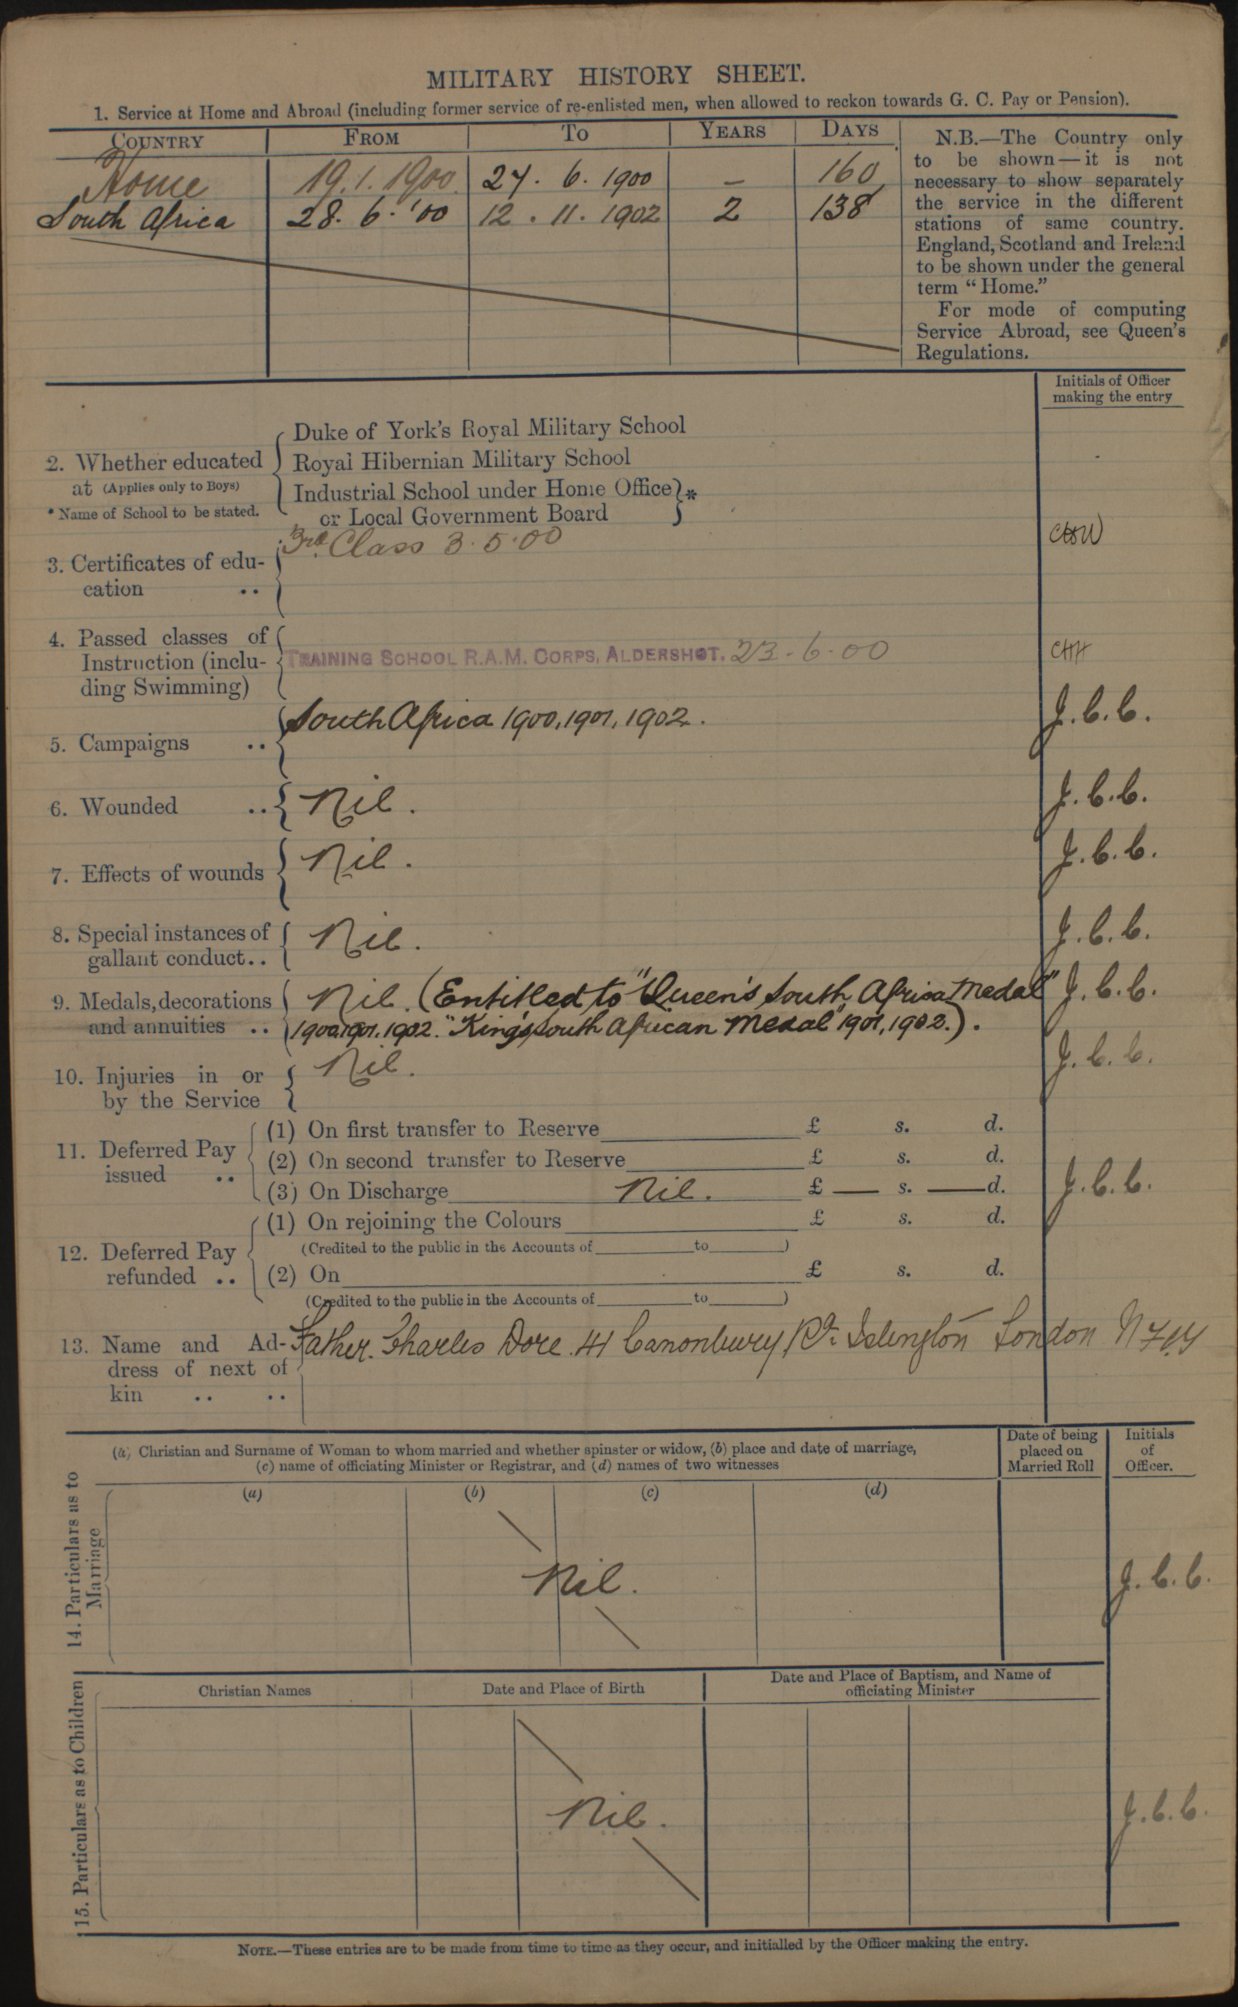 MILITARY HISTORY SHEET.
1. Service at Home and Abroad (including former service of re-enlisted men, when allowed to reckon towards G. C. Pay or Pension).
COUNTRY FROM TO YEARS DAYS
Home 19.1.1900. 27. 6. 1900 — 160
South Africa 28. 6. '00 12. 11. 1902 2 138
N.B.—The Country only
to be shown—it is not
necessary to show separately
the service in the different
stations of same country.
England, Scotland and Ireland
to be shown under the general
term "Home."
For mode of computing
Service Abroad, see Queen's
Regulations.
Initials of Officer
making the entry
2. Whether educated
at (Applies only to Boys)
* Name of School to be stated.
Duke of York's Royal Military School
Royal Hibernian Military School
Industrial School under Home Office
or Local Government Board *
3. Certificates of edu-
cation ..
3rd Class 3.5.00
4. Passed classes of
Instruction (inclu-
ding Swimming)
TRAINING SCHOOL R.A.M. CORPS, ALDERSHOT. 23-6-00
5. Campaigns .. South Africa 1900, 1901, 1902. J.C.C.
6. Wounded .. Nil. J.C.C.
7. Effects of wounds Nil. J.C.C.
8. Special instances of
gallant conduct.. Nil. J.C.C.
9. Medals, decorations Nil. (Entitled to "Queen's South Africa Medal" J.C.C.
and annuities .. 1900.1901.1902. "King's South African Medal" 1901, 1902.).
10. Injuries in or
by the Service Nil. J.C.C.
11. Deferred Pay
issued ..
(1) On first transfer to Reserve £ s. d.
(2) On second transfer to Reserve £ s. d.
(3) On Discharge Nil. £ — s. — d. J.C.C.
12. Deferred Pay
refunded ..
(1) On rejoining the Colours £ s. d.
(Credited to the public in the Accounts of to )
(2) On £ s. d.
(Credited to the public in the Accounts of to )
13. Name and Ad-
dress of next of
kin .. ..
Father. Charles Dore. 41 Canonbury Rd. Islington London N
14. Particulars as to
Marriage
(a) Christian and Surname of Woman to whom married and whether spinster or widow, (b) place and date of marriage,
(c) name of officiating Minister or Registrar, and (d) names of two witnesses
Date of being
placed on
Married Roll
Initials
of
Officer.
(a) (b) (c) (d)
Nil. J.C.C.
15. Particulars as to Children
Christian Names Date and Place of Birth
Date and Place of Baptism, and Name of
officiating Minister
Nil. J.C.C.
NOTE.—These entries are to be made from time to time as they occur, and initialled by the Officer making the entry.